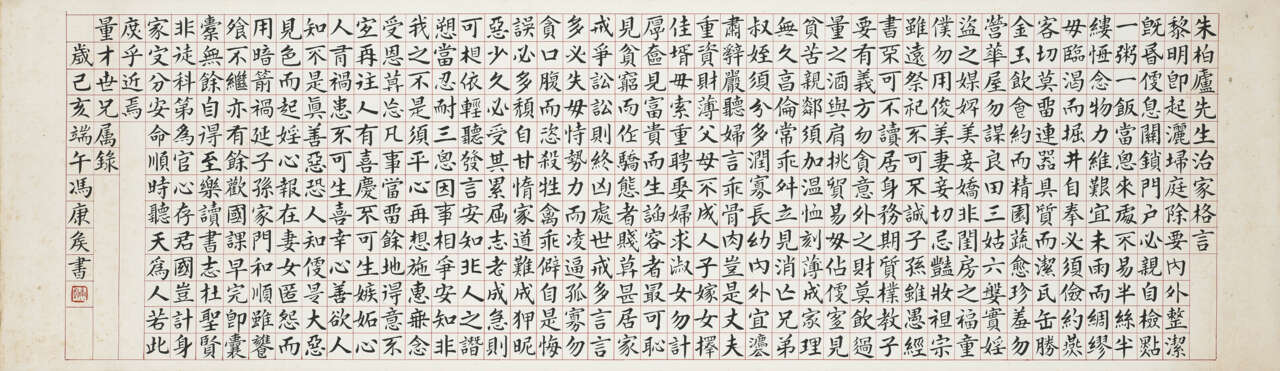 朱柏廬先生治家格言
黎明即起灑埽庭除要內外整潔
既昏便息關鎖門戶必親自檢點
一粥一飯當思來處不易半絲半
縷恆念物力維艱宜未雨而綢繆
毋臨渴而掘井自奉必須儉約燕
客切莫留連器具質而潔瓦缶勝
金玉飲食約而精園蔬愈珍羞勿
營華屋勿謀良田三姑六婆實婬
盜之媒婢美妾嬌非閨房之福童
僕勿用俊美妻妾切忌豔妝祖宗
雖遠祭祀不可不誠子孫雖愚經
書不可不讀居身務期質樸教子
要有義方勿貪意外之財莫飲過
量之酒與肩挑貿易毋佔便宜見
貧苦親鄰須加溫恤刻薄成家理
無久享倫常乖舛立見消亡兄弟
叔姪須分多潤寡長幼內外宜灋
肅辭嚴聽婦言乖骨肉豈是丈夫
重資財薄父母不成人子嫁女擇
佳壻毋索重聘娶婦求淑女勿計
厚奩見富貴而生諂容者最可恥
見貧窮而作驕態者賤莫甚居家
戒爭訟訟則終凶處世戒多言言
多必失毋恃勢力而凌逼孤寡勿
貪口腹而恣殺牲禽乖僻自是悔
誤必多頹自甘惰家道難成狎昵
惡少久必受其累屈志老成急則
可相依輕聽發言安知非人之譖
愬當忍耐三思因事相爭安知非
我之不是須平心再想施惠毋念
受恩莫忘凡事當留餘地得意不
宜再往人有喜慶不可生嫉妬心
人有禍患不可生喜幸心善欲人
知不是眞善惡恐人知便是大惡
見色而起婬心報在妻女匿怨而
用暗箭禍延子孫家門和順雖饔
飧不繼亦有餘歡國課早完即囊
橐無餘自得至樂讀書志在聖賢
非徒科第為官心存君國豈計身
家守分安命順時聽天爲人若此
庶乎近焉
量才世兄属錄
歲己亥端午馮康矦書